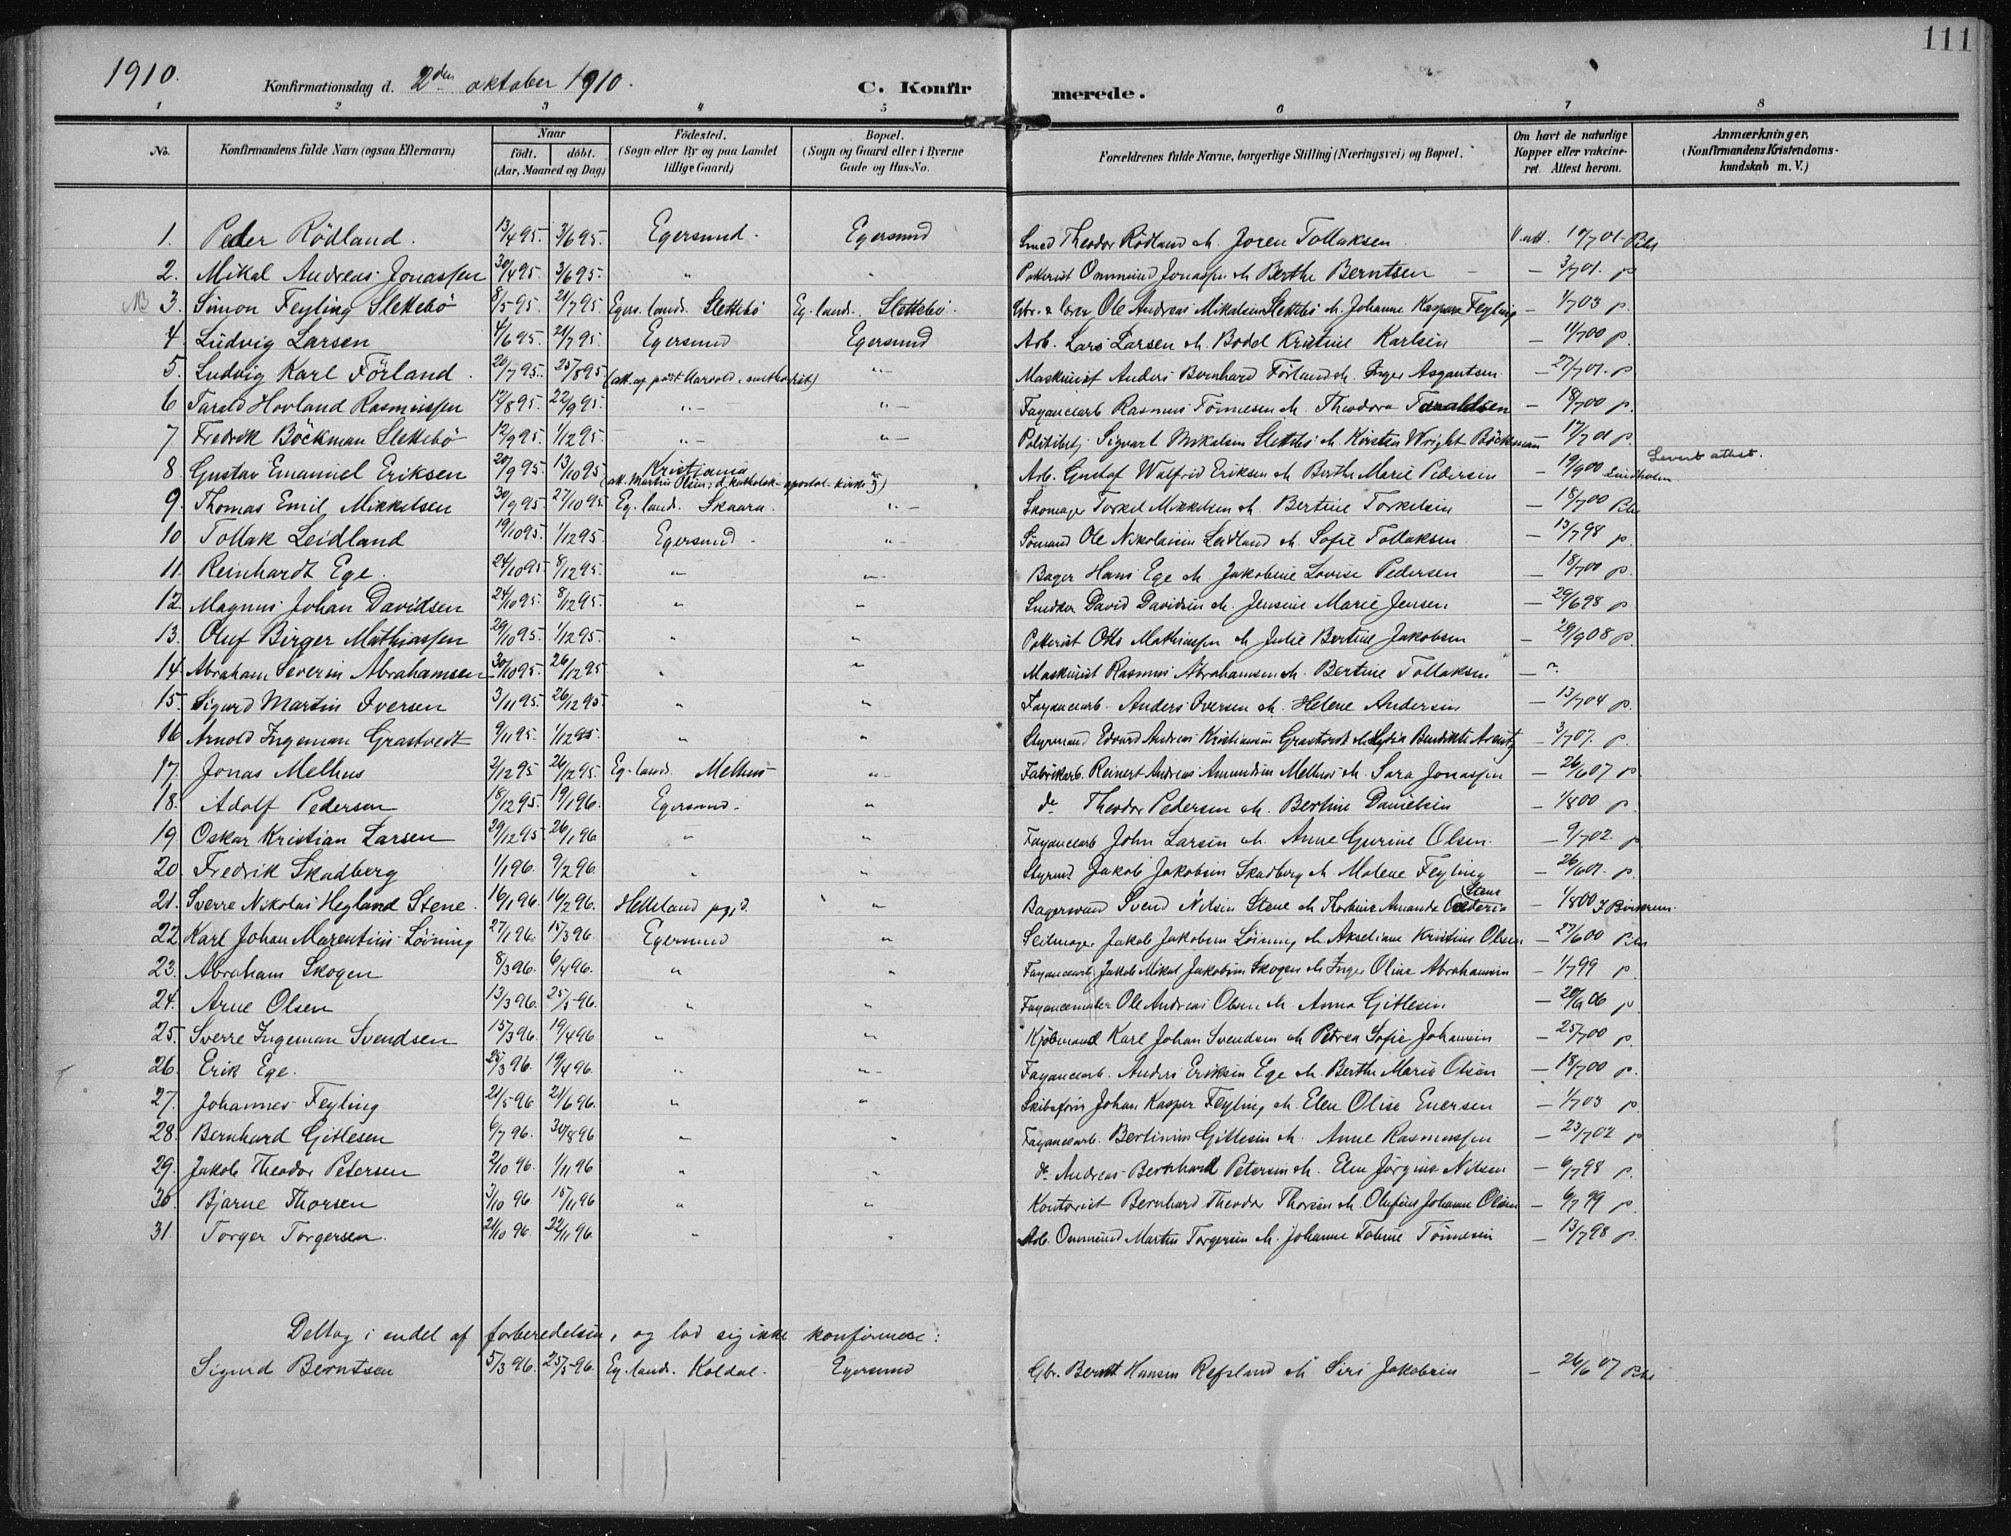 111
1910. Konfirmationsdag d. 2den oktober 1910. C. Konfirmerede.
1 2 3 4 5 6 7 8
No. Konfirmandens fulde Navn (ogsaa Efternavn) Naar født. døbt. (Aar, Maaned og Dag) Fødested. (Sogn eller By og paa Landet tillige Gaard) Bopæl. (Sogn og Gaard eller i Byerne Gade og Hus-No. Forældrenes fulde Navne, borgerlige Stilling (Næringsvei) og Bopæl. Om havt de naturlige Kopper eller vakcineret. Attest herom. Anmærkninger. (Konfirmandens Kristendomskundskab m. V.)
1. Peder Rödland. 13/4 95. 3/6 95. Egersund. Egersund Smed Theodor Rödland & Joren Tollaksen V. att. 10/7 01
2. Mikal Andreas Jonassen 30/4 95. 3/6 95. " " Potterist Ommund Jonassen & Berthe Berntsen — 3/7 01. p
3. Simon Feyling Slettebö 8/5 95. 21/7 95. Egers. lands. Slettebö Eg. lands. Slettebö. Ole Andreas Mikalsen Slettebö & Johanne Kaspara Feyling — 1/7 03 p.
4. Ludvig Larsen 4/6 95. 21/7 95. Egersund Egersund Arb. Lars Larsen & Bodel Kristine Karlsen — 11/7 00 p.
5. Ludvig Karl Förland. 20/7 95. 25/8 95. " Maskinist Anders Bernhard Förland & Inger Asgautsen — 27/7 01. p
6 Tarald Hovland Rasmussen 12/8 95. 22/9 95. " " Fayancearb Rasmus Tönnesen & Theodora Taraldsen — 18/7 00 p.
7. Fredrik Böckman Slettebö 12/9 95. 1/12 95. " " Politibetj. Sigvart Mikalsen Slettebö & Kirsten Wright Böckman — 17/7 01 p.
8 Gustav Emanuel Eriksen 20/9 95. 13/10 95 Kristiania " Arb. Gustaf Walfrid Eriksen & Berthe Marie Pedersen — 19/9 00 Lindholm Levert attest.
9. Thomas Emil Mikkelsen 30/9 95. 27/10 95. Eg. lands. Skaara. " Skomager Torkel Mikkelsen & Bertine Torkelsen — 18/7 00
10. Tollak Leidland 19/10 95. 1/12 95. Egersund " Sömand Ole Nikolaisen Leidland & Sofie Tollaksen — 13/7 98 p.
11. Reinhardt Ege. 24/10 95. 8/12 95. " " Bager Hans Ege & Jakobine Lovise Pedersen — 18/7 00 p.
12. Magnus Johan Davidsen 24/10 95. 8/12 95. " " Snedker David Davidsen & Jensine Marie Jensen — 29/6 98 p
13. Oluf Birger Mathiassen 29/10 95. 1/12 95. " " Potterist Otto Mathiassen & Julie Bertine Jakobsen — 29/9 08 p.
14 Abraham Severin Abrahamsen 30/10 95. 26/12 95 " " Maskinist Rasmus Abrahamsen & Bertine Tollaksen — "
15. Sigurd Martin Iversen 3/11 95. 26/12 95. " " Fayancearb. Anders Iversen & Helene Andersen — 13/7 04 p.
16 Arnold Ingeman Grastvedt 9/11 95. 1/12 95. " " Styrmand Edvard Andreas Kristiansen Grastvedt & Lydia Benedikte Arentz — 3/7 07. p.
17. Jonas Melhus 2/12 95 26/12 95. Eg. lands. Melhus " Fabrikarb. Reinert Andreas Amundsen Melhus & Sara Jonassen — 26/6 07 p
18. Adolf Pedersen 18/12 95. 19/1 96. Egersund. " do Theodor Pedersen & Bertine Danielsen — 1/8 00 p.
19 Oskar Kristian Larsen 29/12 95. 26/1 96 " " Fayancearb John Larsen & Anne Gurine Olsen. — 9/7 02. p
20 Fredrik Skadberg 1/1 96. 9/2 96. " " Styrmd Jakob Jakobsen Skadberg & Malene Feyling — 26/6 01. p.
21. Sverre Nikolai Hegland Stene. 16/1 96. 16/2 96. Helleland pgjd. " Bagersvend Svend Nilsen Stene & Thorbine Amanda Stene — 1/8 00
22 Karl Johan Marentius Löining 27/1 96. 15/3 96. Egersund " Seilmager Jakob Jakobsen Löining & Akseliane Kristine Olsen — 27/6 00
23. Abraham Skogen 8/3 96. 6/4 96. " " Fayancearb. Jakob Mikal Jakobsen Skogen & Inger Oline Abrahamsen — 1/7 99 p.
24. Arne Olsen 13/3 96. 25/5 96. " " Fayancemaler Ole Andreas Olsen & Anna Gitlesen — 20/9 06 p
25. Sverre Ingeman Svendsen 15/3 96. 19/4 96 " " Kjöbmand Karl Johan Svendsen & Petrea Sofie Johansen — 25/7 00 p.
26. Erik Ege. 25/3 96. 19/4 96. " " Fayancearb. Anders Eriksen Ege & Berthe Marie Olsen — 18/7 00 p.
27. Johannes Feyling 21/5 96 21/6 96. " " Skibsförer Johan Kasper Feyling & Elen Olise Evensen — 1/7 03 p.
28. Bernhard Gitlesen 6/7 96. 30/8 96 " " Fayancearb. Bertinius Gitlesen & Anne Rasmussen — 23/7 02 p
29. Jakob Theodor Petersen 2/10 96. 1/11 96 " " do Andreas Bernhard Petersen & Elen Jörgine Nilsen — 6/7 98 p.
30. Bjarne Thorsen 3/10 96 15/11 96 " " Kontorist Bernhard Theodor Thorsen & Olufine Johanne Olsen — 6/7 99 p.
31. Torger Torgersen. 21/10 96. 22/11 96. " " Arb. Ommund Martin Torgersen & Johanne Tobine Tönnesen — 13/7 98 p.
Deltog i endel af forberedelsen, og lod sig ikke konfirmere:
Sigurd Berntsen 5/3 96. 25/5 96. Eg. lands. Koldal. Egersund Gbr. Bernt Hansen Refsland & Siri Jakobsen — 26/6 07